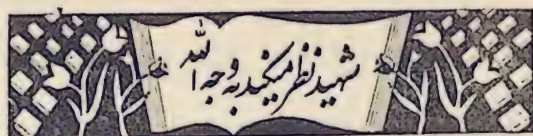 شهید نظر میکند به وجه الله